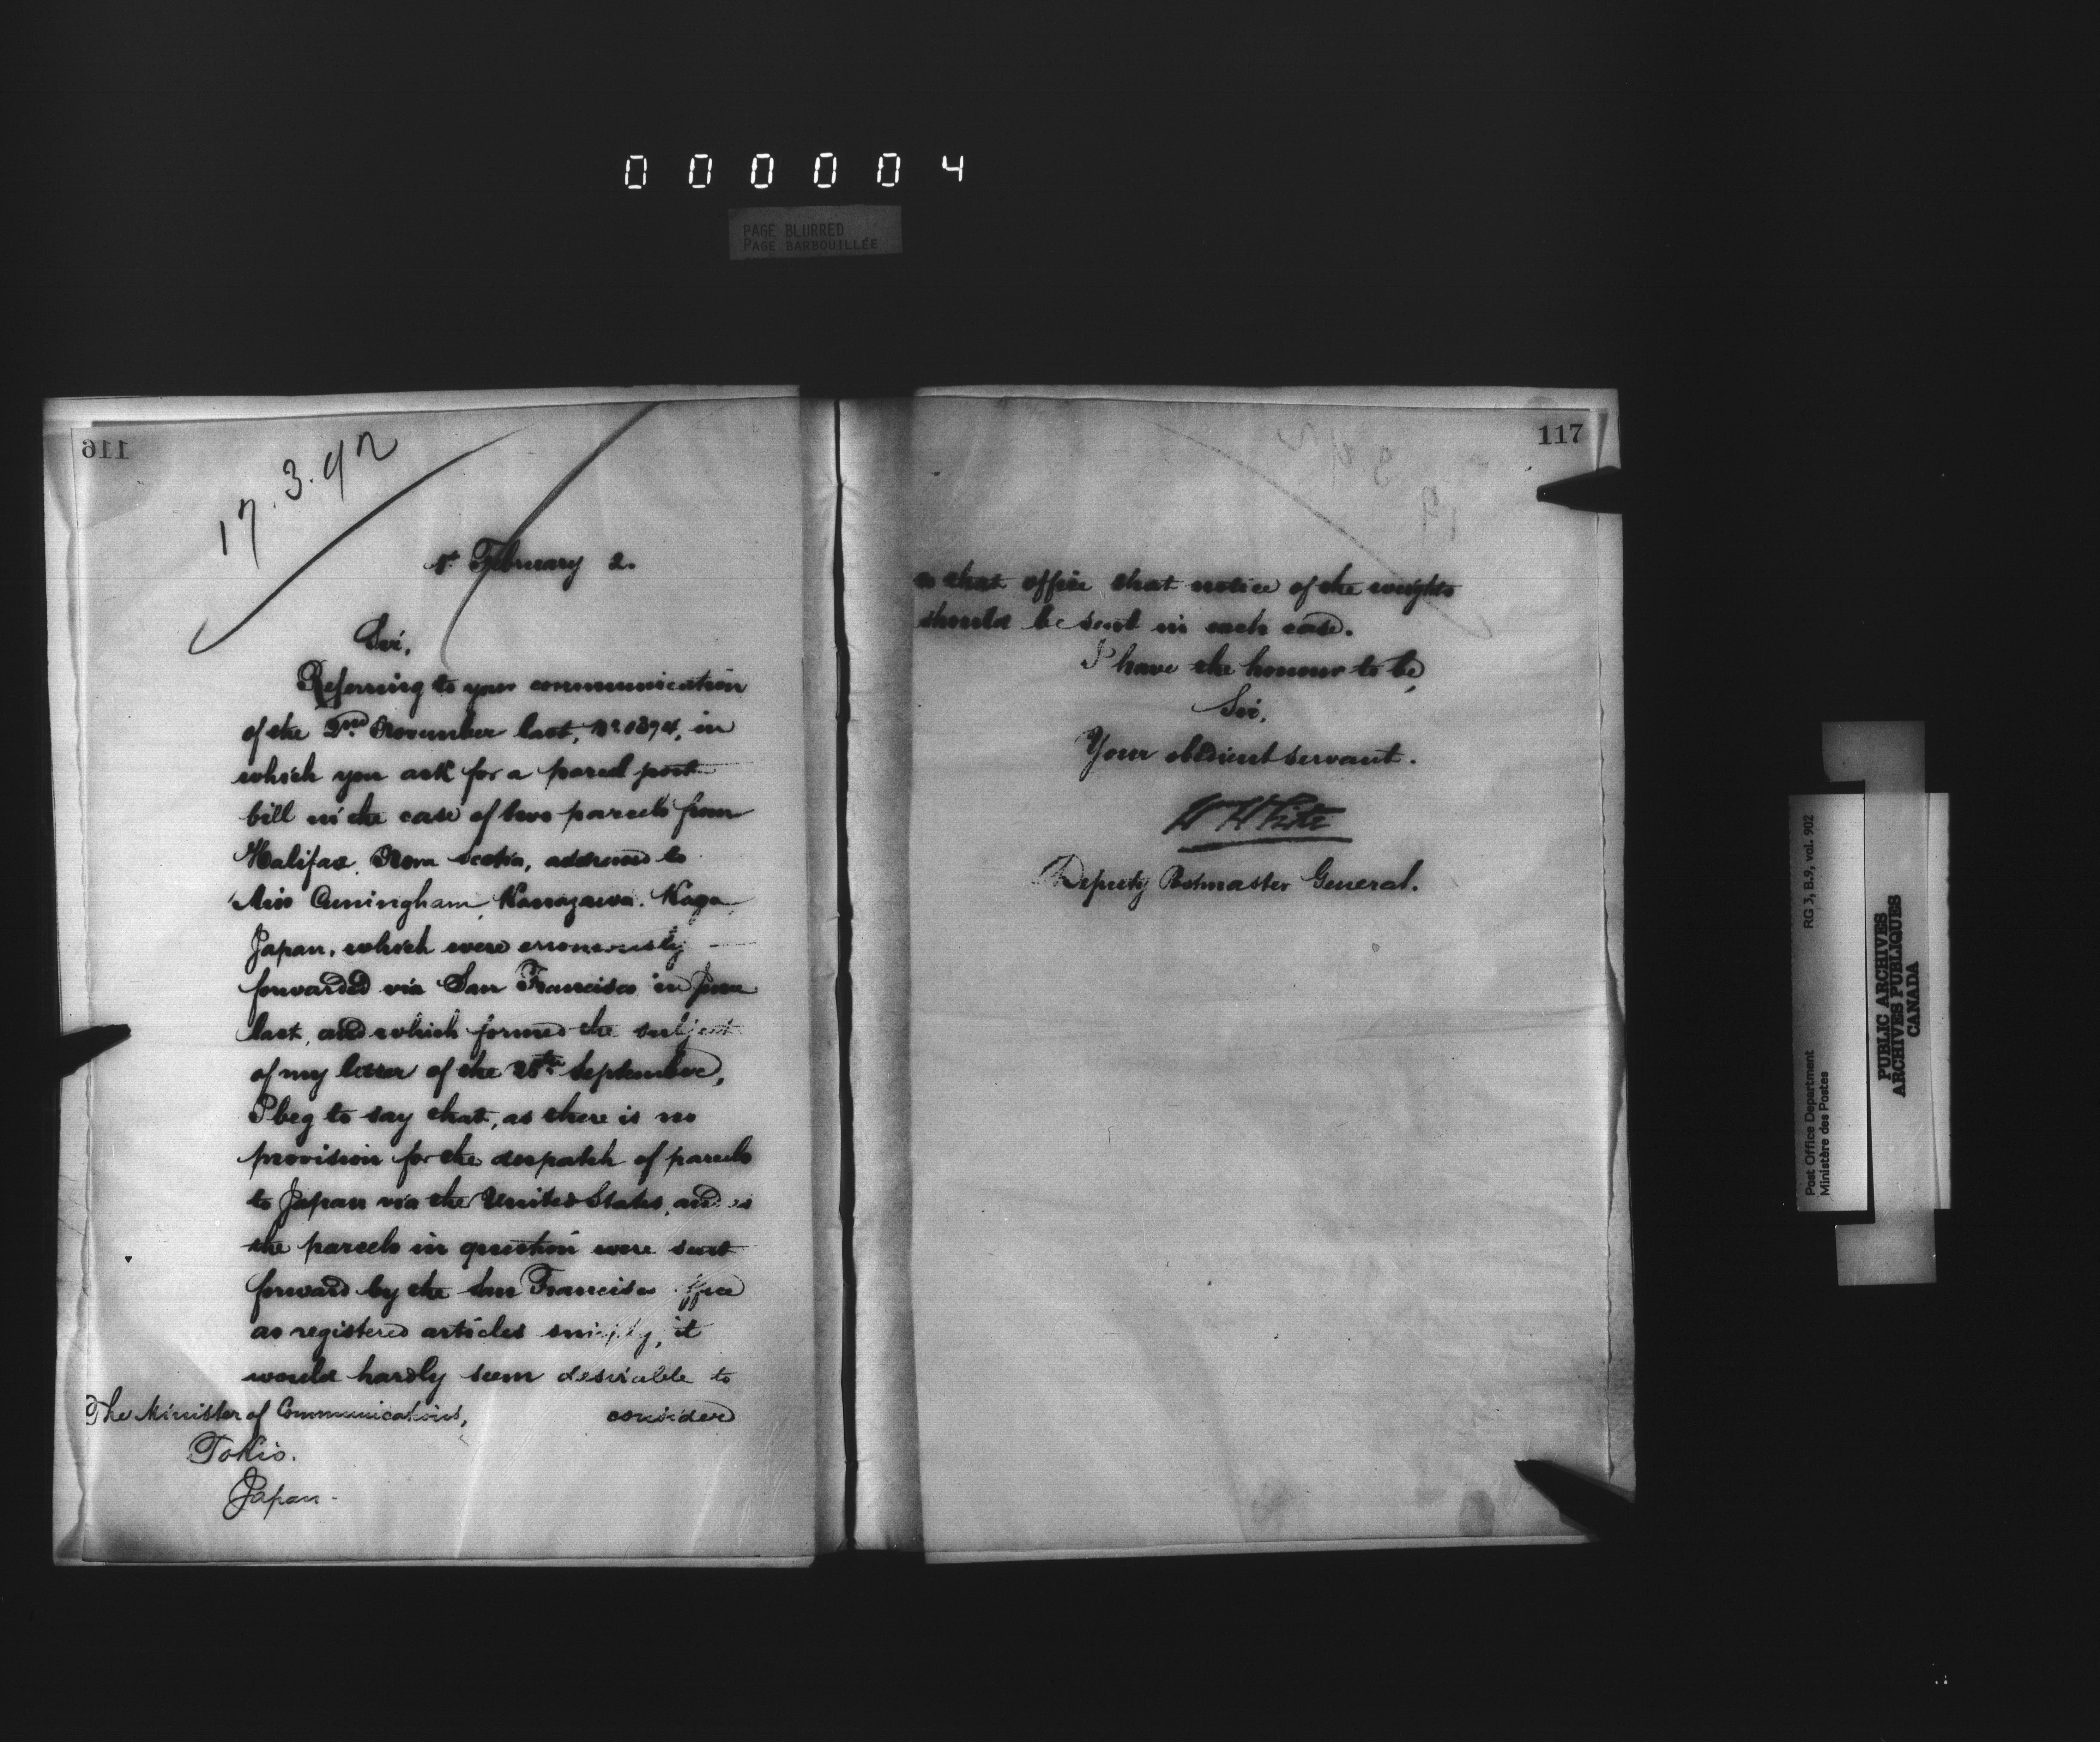 000004
PAGE BLURRED
PAGE BARBOUILLÉE
116
17.3.92
1st February 2.
Sir,
Referring to your communication
of the 2nd November last, No in
which you ask for a parcel post
bill in the case of two parcels from
Halifax, Nova Scotia, addressed to
Miss Cunningham, Kanazawa, Kaga,
Japan, which were erroneously
forwarded via San Francisco in June
last, and which formed the subject
of my letter of the 28th September,
I beg to say that, as there is no
provision for the despatch of parcels
to Japan via the United States, and as
the parcels in question were sent
forward by the San Francisco office
as registered articles simply, it
would hardly seem desirable to
The Minister of Communications, consider
Tokio.
Japan.
117
that office that notice of the weights
should be sent in each case.
I have the honour to be,
Sir,
Your obedient servant.
W White
Deputy Postmaster General.
Post Office Department RG 3, B.9, vol. 902
Ministère des Postes
PUBLIC ARCHIVES
ARCHIVES PUBLIQUES
CANADA